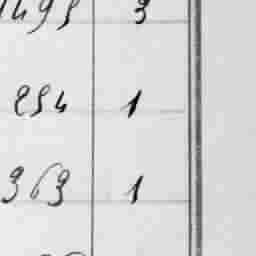 1495 3
254 1
363 1